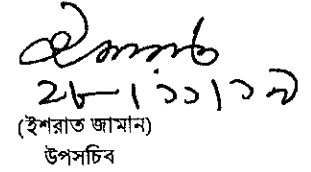 ২৮|১১|১৭
(ইশরাত জামান)
উপসচিব